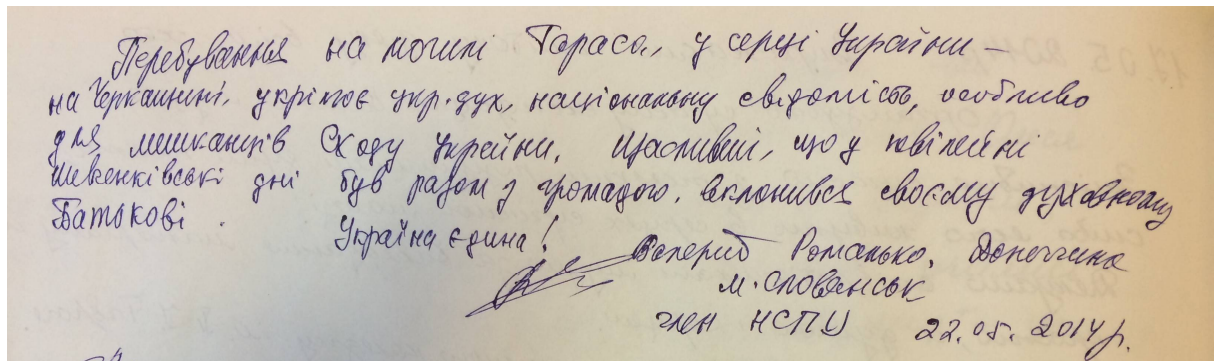 Перебування на могилі Тараса, у серці України –
на Черкащині, укріплює укр. дух, національну свідомість, особливо
для мешканців Сходу України. Щасливий, що у ювілейні
Шевченківські дні був разом з громадою, вклонився своєму духовному
Батькові.
Україна єдина!
Валерій Романько, Донеччина
м. Слов'янськ
член НСПУ 22.05.2014 р.